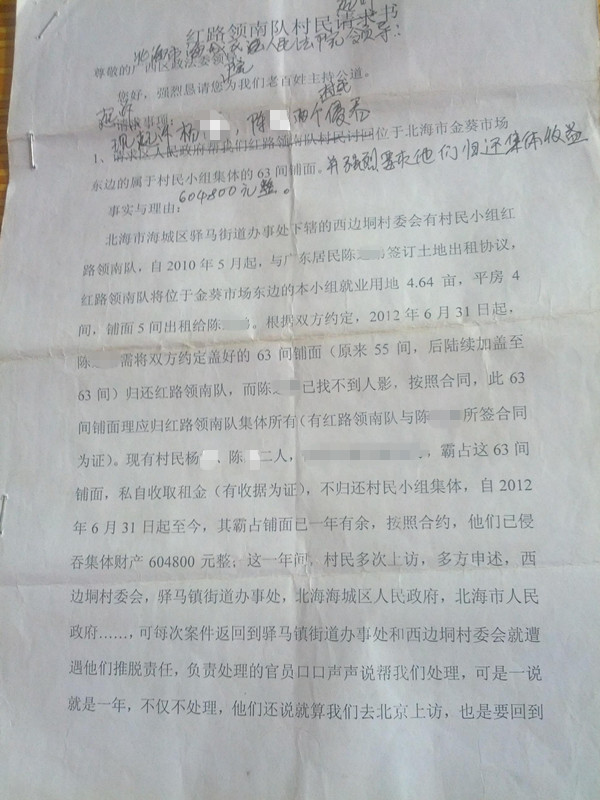 红路领南队村民请求书
北海市海城区人民法院领导:
尊敬的广西区政法委领导
您好,强烈恳请您为我们老百姓主持公道。
起诉
请求事项:
现起诉杨 ,陈 两个村民侵占
1、请求区人民政府帮我们红路领南队村民讨回位于北海市金葵市场
东边的属于村民小组集体的 63 间铺面。并强烈要求他们归还集体收益
604800元整。
事实与理由:
北海市海城区驿马街道办事处下辖的西边垌村委会有村民小组红
路领南队,自 2010 年 5 月起,与广东居民陈 签订土地出租协议,
红路领南队将位于金葵市场东边的本小组就业用地 4.64 亩,平房 4
间,铺面 5 间出租给陈 。根据双方约定,2012 年 6 月 31 日起,
陈 需将双方约定盖好的 63 间铺面(原来 55 间,后陆续加盖至
63 间)归还红路领南队,而陈 已找不到人影,按照合同,此 63
间铺面理应归红路领南队集体所有(有红路领南队与陈 所签合同
为证)。现有村民杨 、陈 二人, ,霸占这 63 间
铺面,私自收取租金(有收据为证),不归还村民小组集体,自 2012
年 6 月 31 日起至今,其霸占铺面已一年有余,按照合约,他们已侵
吞集体财产 604800 元整;这一年间,村民多次上访,多方申述,西
边垌村委会,驿马镇街道办事处,北海海城区人民政府,北海市人民
政府……,可每次案件返回到驿马镇街道办事处和西边垌村委会就遭
遇他们推脱责任,负责处理的官员口口声声说帮我们处理,可是一说
就是一年,不仅不处理,他们还说就算我们去北京上访,也是要回到